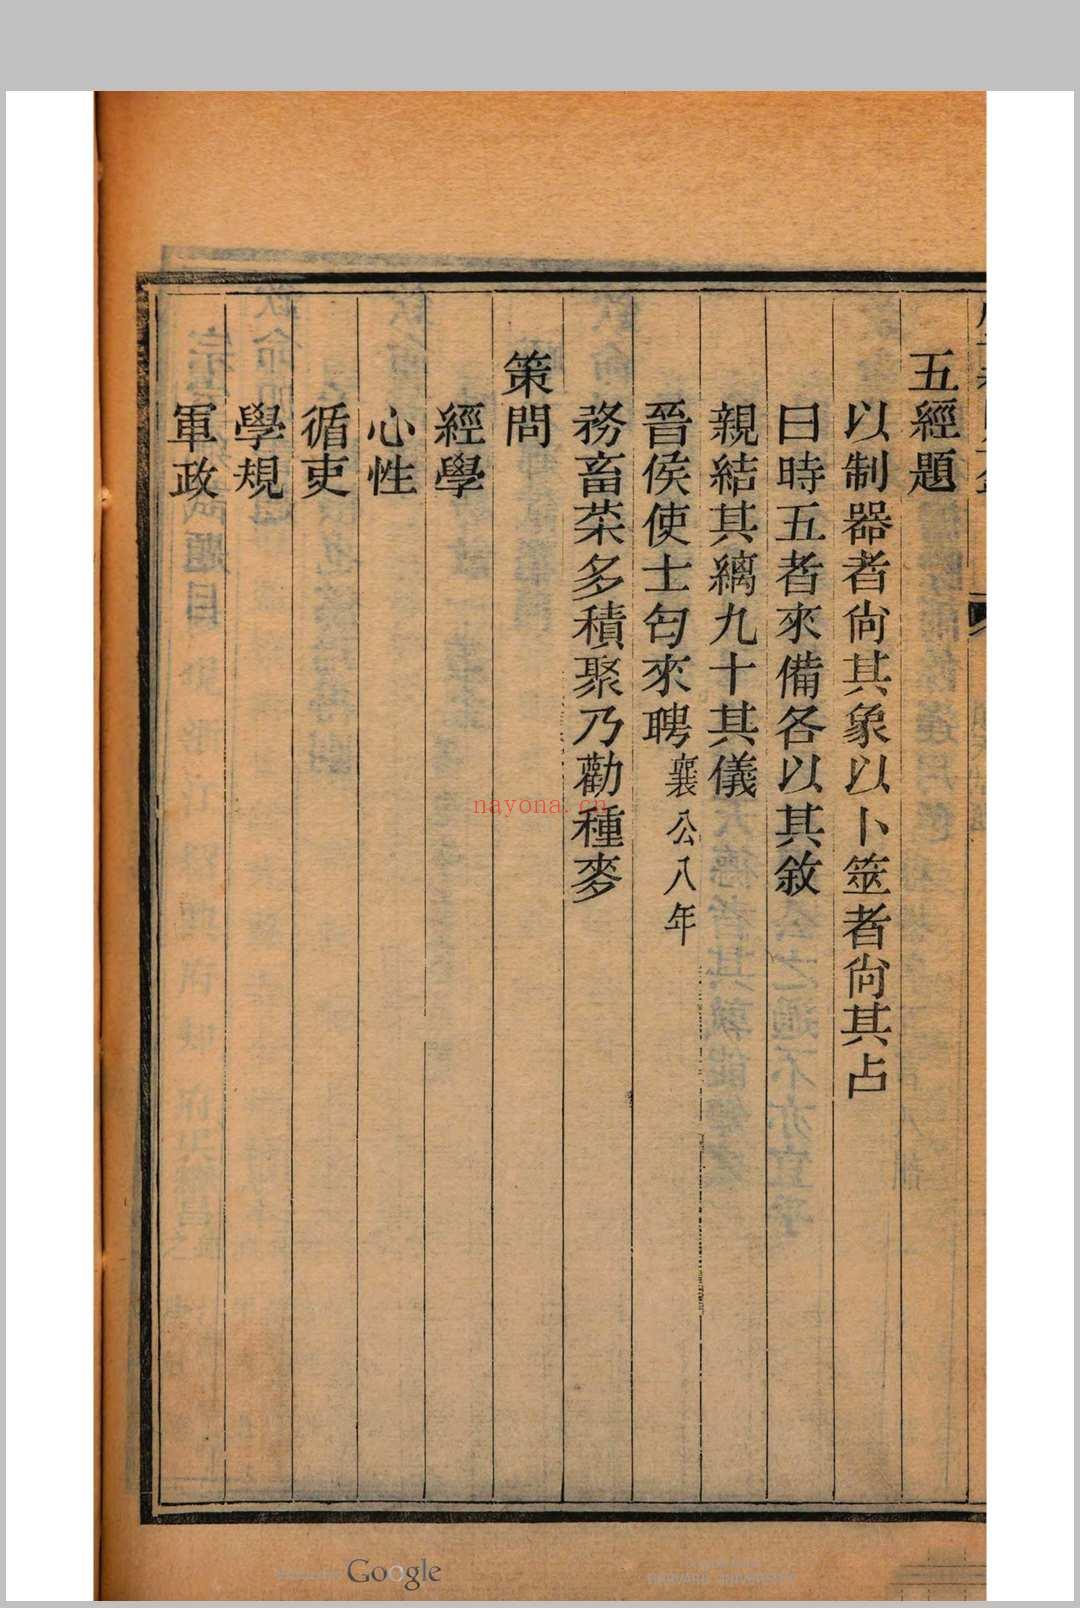 五經題
以制器者尙其象以卜筮者尙其占
曰時五者來備各以其敘
親結其縭九十其儀
晉侯使士匄來聘襄公八年
務畜菜多積聚乃勸種麥
策問
經學
心性
循吏
學規
軍政
nayona.cn
Google